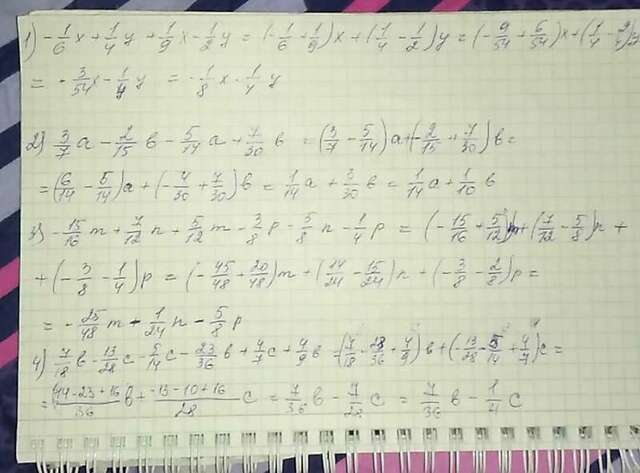 1) -1/6 x + 1/4 y + 1/9 x - 1/2 y = (-1/6 + 1/9)x + (1/4 - 1/2)y = (-9/54 + 6/54)x + (1/4 - 2/4)y
= -3/54 x - 1/4 y = -1/8 x - 1/4 y
2) 3/7 a - 2/15 в - 5/14 a + 7/30 в = (3/7 - 5/14)a + (-2/15 + 7/30)в =
= (6/14 - 5/14)a + (-4/30 + 7/30)в = 1/14 a + 3/30 в = 1/14 a + 1/10 в
3) -15/16 m + 7/12 n + 5/12 m - 3/8 p - 5/8 n - 1/4 p = (-15/16 + 5/12)m + (7/12 - 5/8)n +
+ (-3/8 - 1/4)p = (-45/48 + 20/48)m + (14/24 - 15/24)n + (-3/8 - 2/8)p =
= -25/48 m + 1/24 n - 5/8 p
4) 7/18 в - 13/28 c - 5/14 c - 23/36 в + 4/7 c + 4/9 в (7/18 - 23/36 + 4/9)в + (-13/28 - 5/14 + 4/7)c =
= (14-23+16)/36 в + (-13-10+16)/28 c = 7/36 в - 7/28 c = 7/36 в - 1/4 c